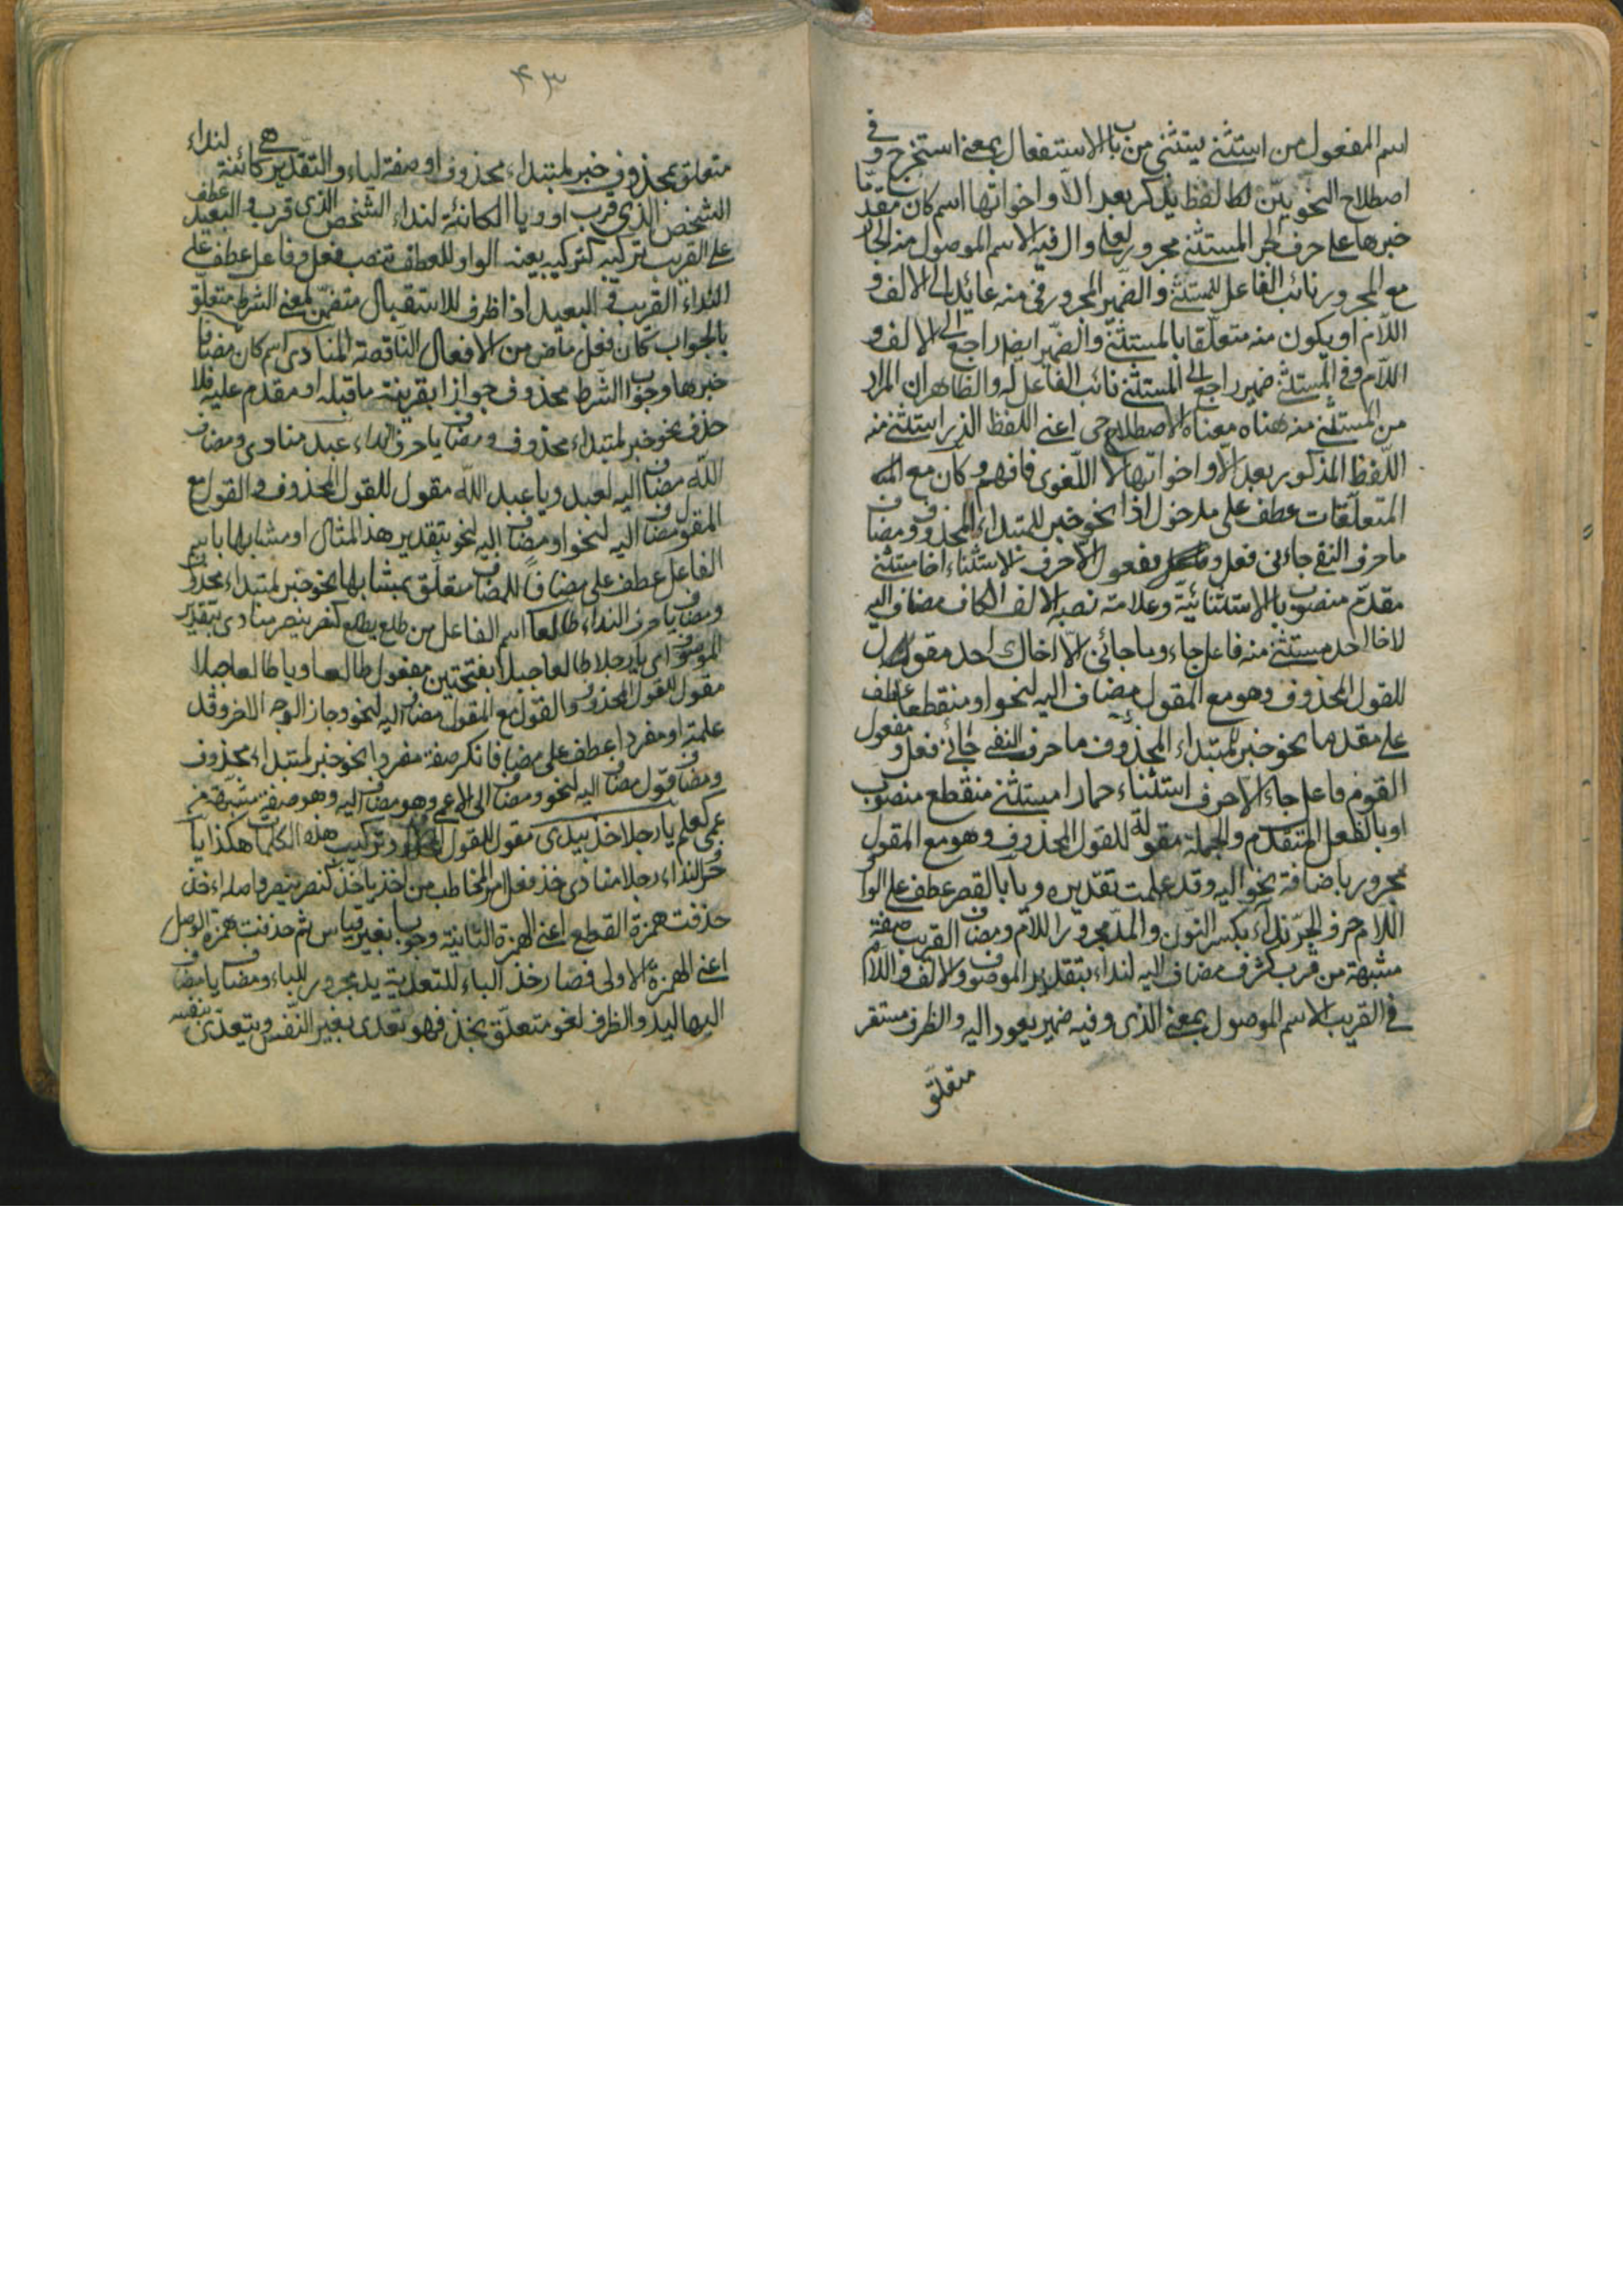 اسم المفعول من استثنى يستثنى من باب الاستفعال بمعنى استخرج و فى
اصطلاح النحويين لفظ يذكر بعد الا و اخواتها اسم كان مقدما
خبرها على حرف الجر المستثنى مجرور بعلى و ال فيه الاسم الموصول منه الجار
مع المجرور نائب الفاعل للمستثنى و الضمير المجرور فى منه عائد الى الالف و
اللام او يكون منه متعلقا بالمستثنى و الضمير ايضا راجع الى الالف و
اللام و فى المستثنى ضمير راجع الى المستثنى نائب الفاعل له و الظاهر ان المراد
من المستثنى منه هناه معناه الاصطلاحى اعنى اللفظ الذى استثنى منه
اللفظ المذكور بعد الا و اخواتها لا اللغوى فافهم و كان مع
المتعلقات عطف على مدخول اذا نحو خبر للمبتداء المحذوف و مضاف
ما حرف النفى جاءنى فعل و مفعول الا حرف الاستثناء اخا مستثنى
مقدم منصوب بالا الاستثنائية و علامة نصبه الالف الكاف مضاف اليه
لاخا احد مستثنى منه فاعل جاء و ما جائنى الا اخاك احد مقول
للقول المحذوف و هو مع المقول مضاف اليه لنحو او منقطعا عطف
على مقدما نحو خبر لمبتداء المحذوف ما حرف النفى جائنى فعل و مفعول
القوم فاعل جاء الا حرف استثناء حمارا مستثنى منقطع منصوب
او بالفعل المتقدم و الجملة مقولة للقول المحذوف و هو مع المقول
مجرور باضافة نحو اليه و قد علمت تقديره و يا بالقصر عطف على الواو
اللام حرف الجر نداء بكسر النون و المد مجرور اللام و مضاف القريب صفة
مشبهة من قرب كشرف مضاف اليه لنداء بتقدير الموصوف و الالف و اللام
فى القريب الاسم الموصول بمعنى الذى و فيه ضمير يعود اليه و الظرف مستقر
متعلق
۴۳
متعلق بمحذوف خبر لمبتداء محذوف او صفة لياء و التقدير هى كائنة لنداء
الشخص الذى قرب او و يا الكائنة لنداء الشخص الذى قرب و البعيد عطف
على القريب تركيبه كتركيبه بعينه الواو للعطف تنصب فعل و فاعل عطف على
النداء القريب و البعيد اذا ظرف للاستقبال متضمن لمعنى الشرط متعلق
بالجواب كان فعل ماض من الافعال الناقصة المنادى اسم كان مضافا
خبرها و جواب الشرط محذوف جوازا بقرينة ما قبله او مقدم عليه فلا
حذف نحو خبر لمبتداء محذوف و مضاف يا حرف النداء عبد منادى و مضاف
الله مضاف اليه لعبد و يا عبد الله مقول للقول المحذوف و القول مع
المقول مضاف اليه لنحو او مضاف اليه لنحو بتقدير هذا المثال او مشابها باسم
الفاعل عطف على مضافا للمضاف متعلق بمشابها نحو خبر لمبتداء محذوف
و مضاف يا حرف النداء طالعا اسم الفاعل من طلع يطلع كنصر ينصر منادى بتقدير
الموصوف اى يا رجلا طالعا جبلا بفتحتين مفعول طالعا و يا طالعا جبلا
مقول للقول المحذوف و القول مع المقول مضاف اليه لنحو و جاز الوجه الاخر و قد
علمته او مفردا عطف على مضافا نكرة صفة مفردا نحو خبر لمبتداء محذوف
و مضاف قول مضاف اليه لنحو و مضاف الى الاعمى و هو مضاف اليه و هو صفة مشبهة من
عمى كعلم يا رجلا خذ بيدى مقول للقول و تركيب هذه الكلمات هكذا يا
حرف النداء رجلا منادى خذ فعل امر المخاطب من اخذ ياخذ كنصر ينصر و اصله اءخذ
حذفت همزة القطع اعنى الهمزة الثانية وجوبا بغير قياس ثم حذفت همزة الوصل
اعنى الهمزة الاولى فصار خذ الباء للتعدية يد مجرور للباء و مضاف يا مضاف
اليها ليد و الظرف لغو متعلق بخذ فهو تعدى بغير النفس و يتعدى بنفسه